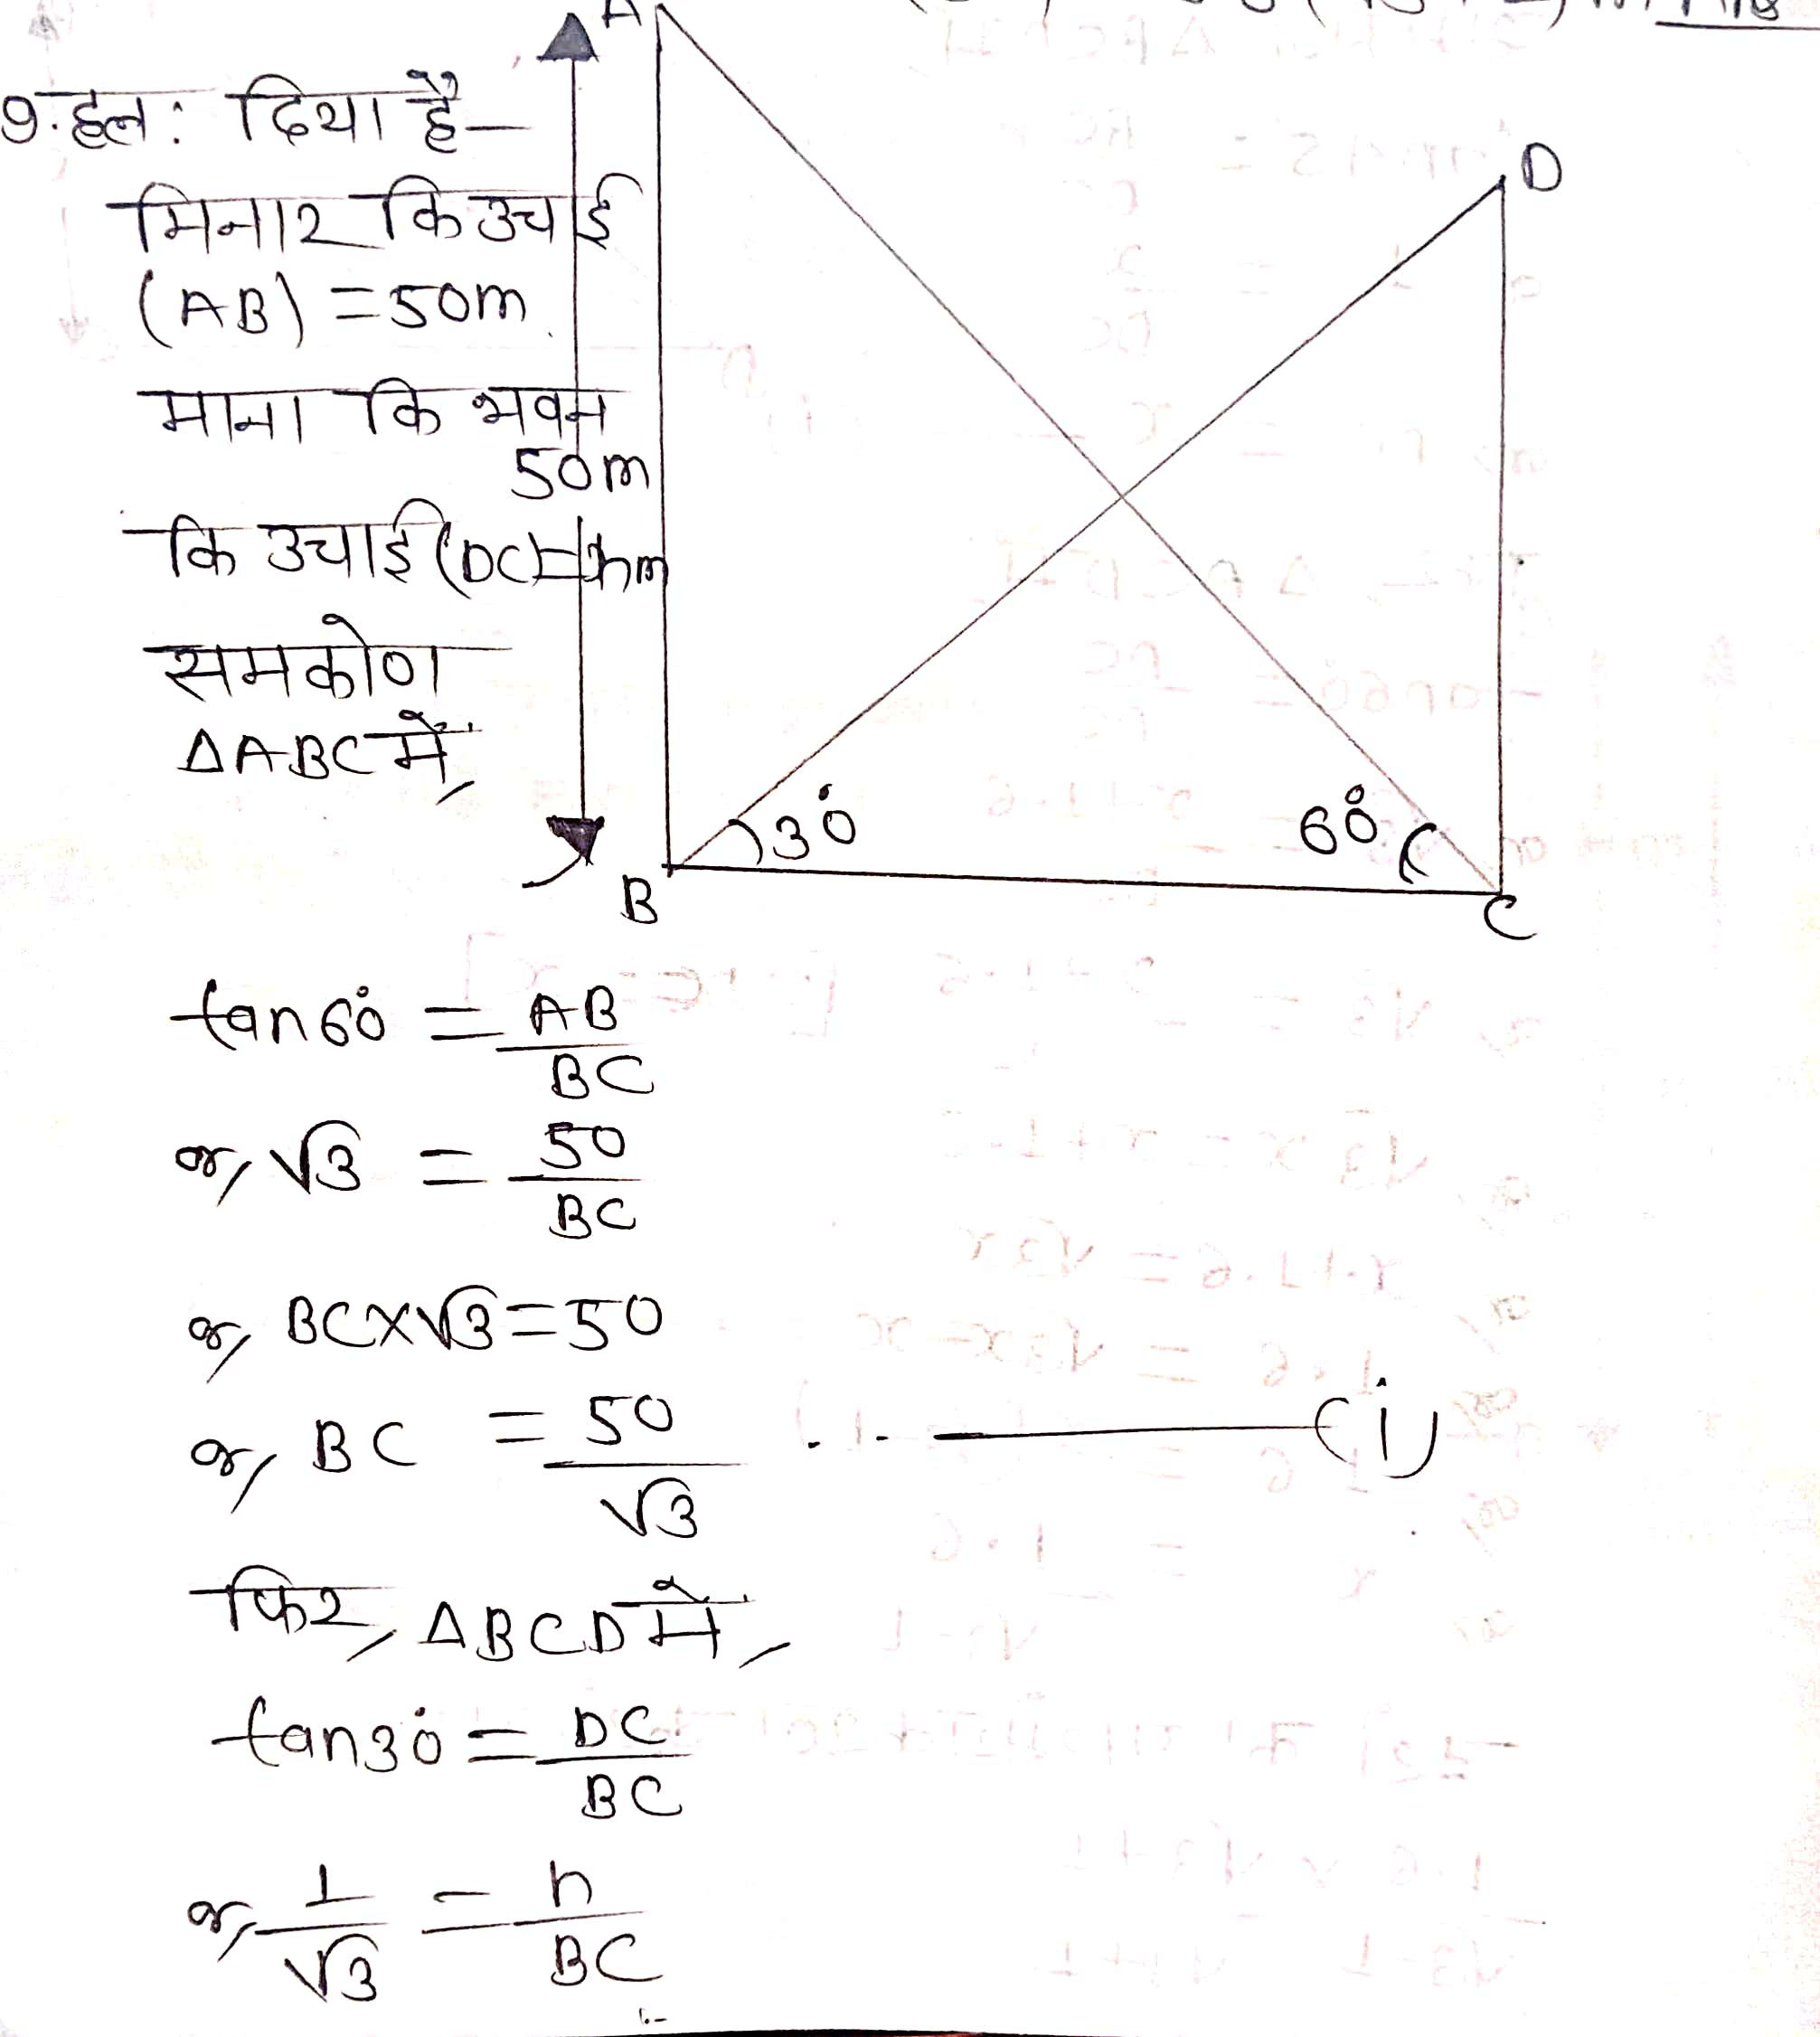 A
9. हल: दिया है—
D
मिनार कि उचाई
(AB) = 50m
माना कि भवन
50m
कि उचाई (DC) = hm
समकोण
ΔABC में,
30°
60°
B
C
tan60° = AB/BC
or, √3 = 50/BC
or, BC×√3 = 50
or, BC = 50/√3 .. —(i)
फिर, ΔBCD में,
tan30° = DC/BC
or, 1/√3 = h/BC